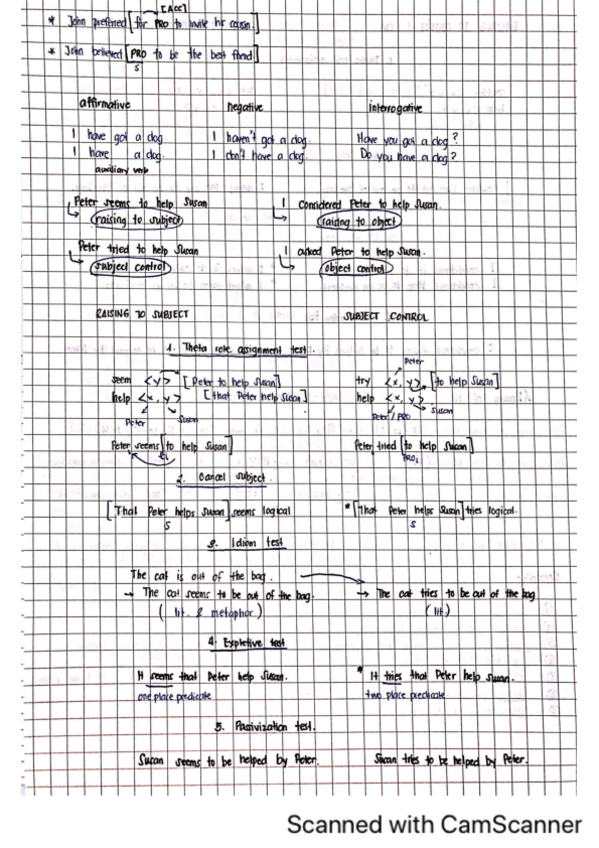 [Acc]
* John preferred [for PRO to invite his cousin]
* John believed [PRO to be the best friend]
S
affirmative negative interrogative
I have got a dog I haven't got a dog. Have you got a dog?
I have a dog. I don't have a dog. Do you have a dog?
auxiliary verb
Peter seems to help Susan I considered Peter to help Susan.
raising to subject raising to object
Peter tried to help Susan I asked Peter to help Susan.
subject control object control
RAISING TO SUBJECT SUBJECT CONTROL
1. Theta role assignment test.
Peter
seem <y> [Peter to help Susan] try <x, y> [to help Susan]
help <x, y> [that Peter help Susan] help <x, y>
Peter Susan Peter / PRO Susan
Peter seems [to help Susan] Peter tried [to help Susan]
ti PROi
2. Clausal subject.
[That Peter helps Susan] seems logical * [That Peter helps Susan] tries logical.
S S
3. Idiom test
The cat is out of the bag.
→ The cat seems to be out of the bag. → The cat tries to be out of the bag
(lit. & metaphor) (lit)
4. Expletive test
It seems that Peter help Susan. * It tries that Peter help Susan.
one place predicate two place predicate
5. Passivization test.
Susan seems to be helped by Peter. Susan tries to be helped by Peter.
Scanned with CamScanner